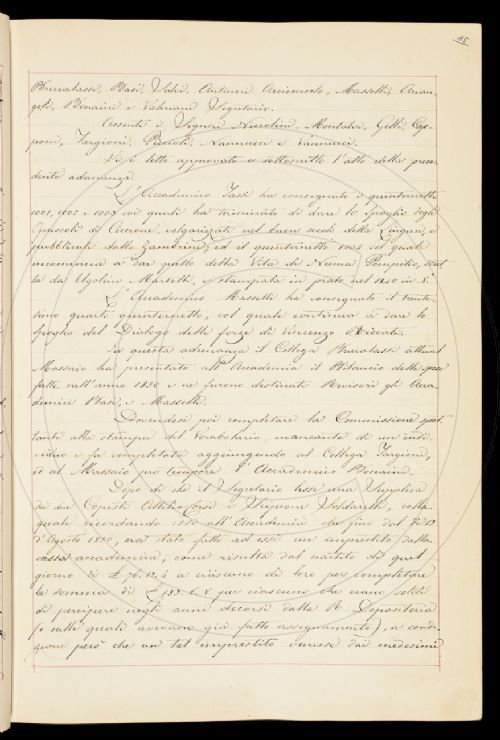 95
Brucalassi, Basi, Salvi, Antinori Arciconsolo, Massetti, Arcan-
geli, Benaini e Valeriani Segretario.
Assenti i Signori Niccolini, Montalvi, Gelli, Cap-
poni, Targioni, Piccioli, Nannucci e Vannucci.
Fu letto approvato e sottoscritto l'atto della prece-
dente adunanza
L'Accademico Basi ha consegnato i quinternetti
1001, 1002 e 1003 coi quali ha terminato di dare lo spoglio degli
Opuscoli di Cicerone volgarizzati nel buon secolo della Lingua, e
pubblicati dallo Zambrini; ed il quinternetto 1004 col quale
incomincia a dar quello della Vita di Numa Pompilio, scrit-
ta da Ugolino Martelli, e stampata in Prato nel 1840 in 8°.
L'Accademico Massetti ha consegnato il trente-
simo quarto quinternetto, col quale continua a dare lo
spoglio del Dialogo delle forze di Vincenzo Riccati.
In questa adunanza il Collega Brucalassi attual
Massaio ha presentato all'Accademia il Bilancio delle spese
fatte nell'anno 1850 e ne furono destinati Revisori gli Acca-
demici Basi, e Massetti.
Dovendosi poi completare la Commissione spet-
tante alla stampa del Vocabolario, mancante di un indi-
viduo si fu completata aggiungendo al Collega Targioni,
ed al Massaio pro tempore l'Accademico Benaini.
Dopo di che il Segretario lesse una Supplica
da due Copisti Attilio Corsi e Scipione Soldarelli, colla
quale ricordando essi all'Accademia che fino dal dì 13
d'Agosto 1850, era stato fatto ad essi un imprestito dalla
cassa accademica, come risulta dal partito di quel
giorno di £ 76. 13. 4 a ciascuno di loro per completare
la somma di £ 133. 6. 8 per ciascuno che erano soliti
di percipere negli anni decorsi dalla R. Depositeria
(e sulle quali avevano già fatto assegnamento), a condi-
zione però che un tal imprestito venisse dai medesimi